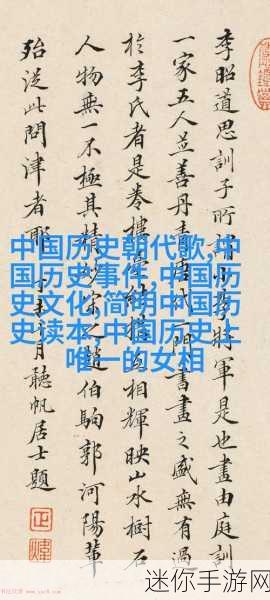 李昭道思訓子所謂小李將軍是也畫由庭訓
一家五人並善丹青唐代一門書畫之盛無有過
於李氏者是卷樓相輝映山水樹石
人物無一不極其精伯駒郭河陽輩
殆從此問津者耶 月聽帆居士題
中国历史朝代歌,中
国历史事件,中国历
史文化,简明中国历
史读本,中国历史上
唯一的女相
迷你手游网